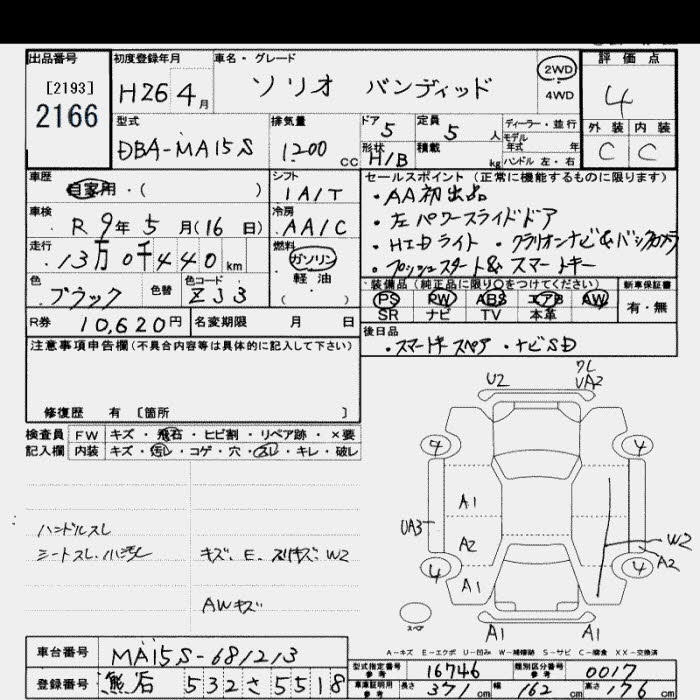 出品番号 初度登録年月 車名・グレード 評価点
[2193]
2166
H26 4月 ソリオ バンディッド 2WD 4WD 4
型式 排気量 ドア 定員 ディーラー・並行 外装 内装
DBA-MA15S 1200cc 5 5人 モデル年式 年 C C
形状 H/B 積載 kg ハンドル 左・右
車歴 自家用・( ) シフト IA/T
車検 R9年5月(16日) 冷房 AA/C
走行 13万0千440km 燃料 ガソリン 軽油 ( )
色 ブラック 色替 色コード ZJ3
R券 10,620円 名変期限 月 日
セールスポイント(正常に機能するものに限ります)
・AA初出品
・左パワースライドドア
・HIDライト ・クラリオンナビ&バックカメラ
・プッシュスタート&スマートキー
装備品(純正品に限り○をつけてください) 新車保証書
PS PW ABS エアB AW 有・無
SR ナビ TV 本革
後日品
・スマートキースペア ・ナビSD
注意事項申告欄(不具合内容等は具体的に記入して下さい)
修復歴 有 [箇所 ]
検査員記入欄 FW キズ・飛石・ヒビ割・リペア跡・×要
内装 キズ・汚レ・コゲ・穴・スレ・キレ・破レ
ハンドルスレ
シートスレ・小汚レ キズ、E、スリキズ、W2
AWキズ
U2 ワレ UA2
4 4
A1
UA3 A2 W2
A2
4 A1 4
スペア A1 A1
A-キズ E-エクボ U-凹み W-補修跡 S-サビ C-腐食 XX-交換済
車台番号 MA15S-681213
登録番号 熊谷 532 さ 5518
型式指定番号 参考 16746 類別区分番号 参考 0017
車庫証明用 参考 長さ 371cm 幅 162cm 高さ 176cm